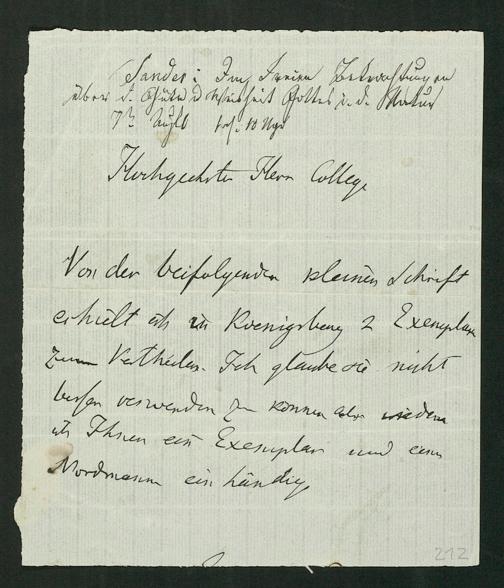 Sander: Im Freien Betrachtungen
über d. Güte u Weisheit Gottes i. d. Natur
7te Aufl
Hochgeehrter Herr College
Von der beifolgenden kleinen Schrift
erhielt ich in Koenigsberg 2 Exemplare
zum Vertheilen. Ich glaube sie nicht
besser verwenden zu können als indem
ich Ihnen ein Exemplar und eins
Nordmann einhändig
212